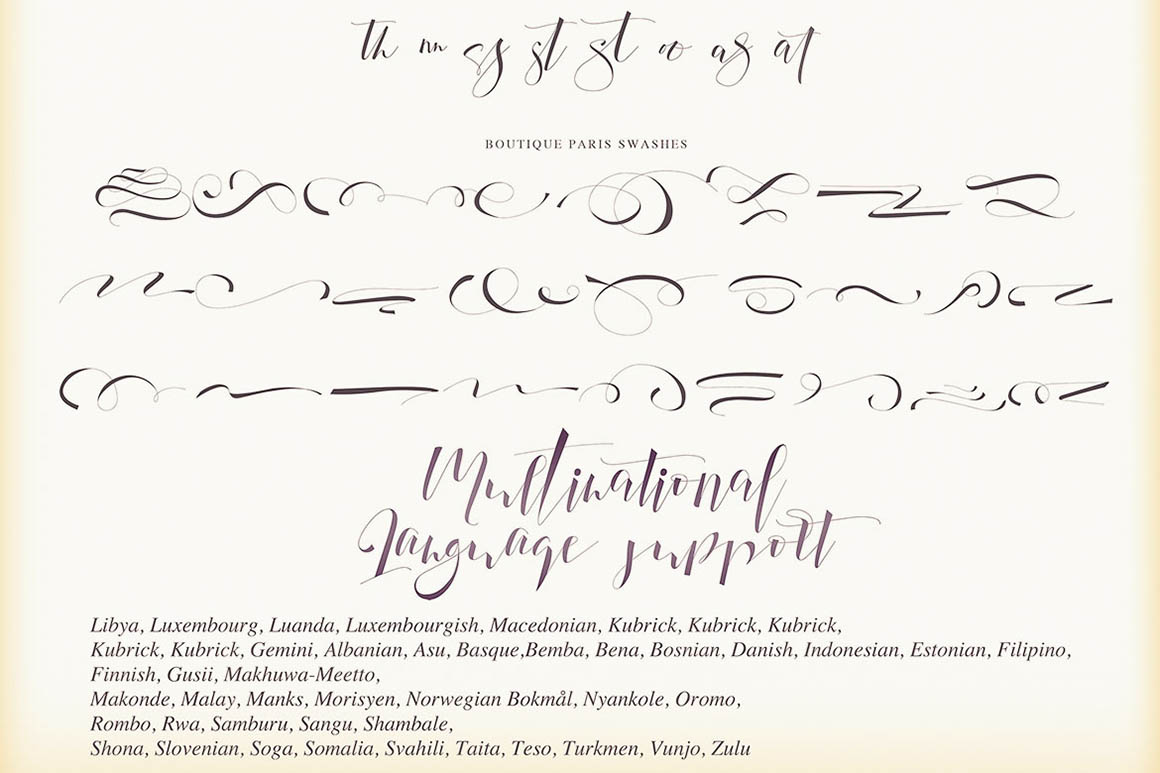 th nn gs st st oo as at
BOUTIQUE PARIS SWASHES
Multinational
Language support
Libya, Luxembourg, Luanda, Luxembourgish, Macedonian, Kubrick, Kubrick, Kubrick,
Kubrick, Kubrick, Gemini, Albanian, Asu, Basque,Bemba, Bena, Bosnian, Danish, Indonesian, Estonian, Filipino,
Finnish, Gusii, Makhuwa-Meetto,
Makonde, Malay, Manks, Morisyen, Norwegian Bokmål, Nyankole, Oromo,
Rombo, Rwa, Samburu, Sangu, Shambale,
Shona, Slovenian, Soga, Somalia, Svahili, Taita, Teso, Turkmen, Vunjo, Zulu